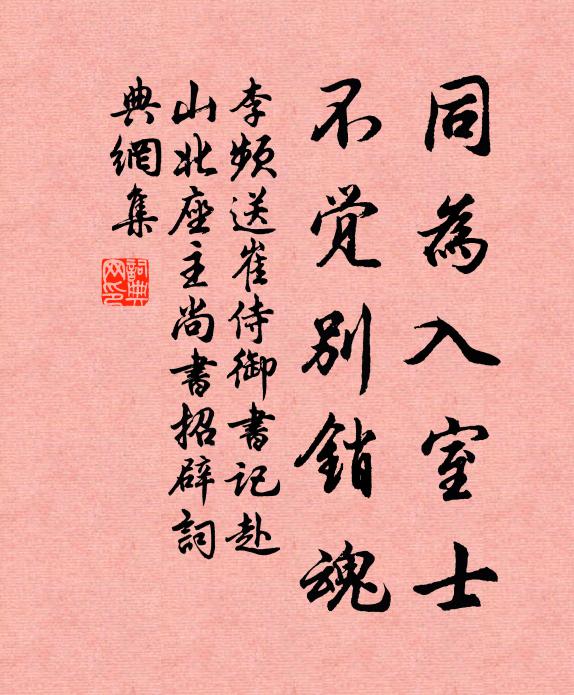 同為入室士
不覚別銷魂
李頻送崔侍御書記赴
山北座主尚書招辟詞
典網集
詞典
网印